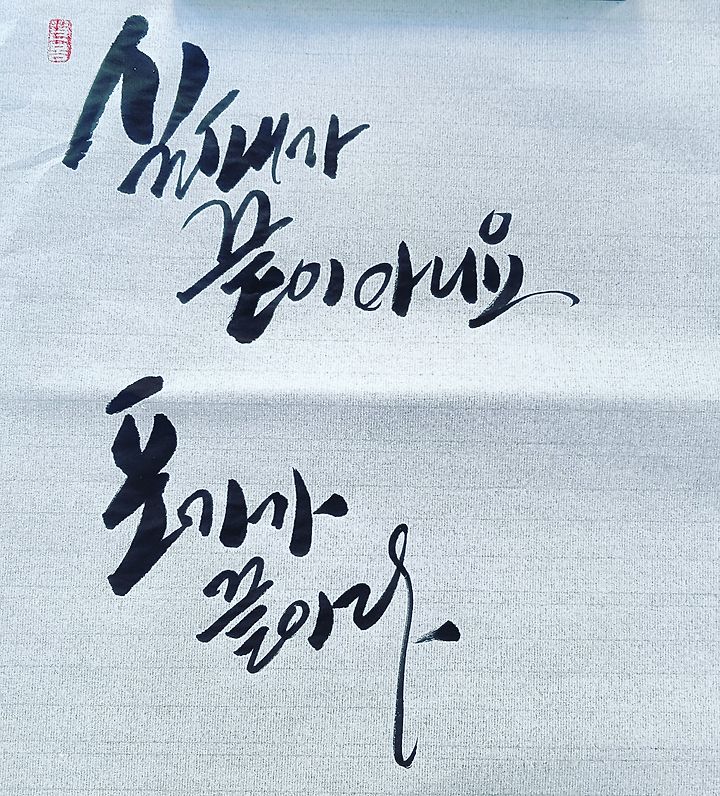 실패가
끝이 아니요
포기가
끝이라